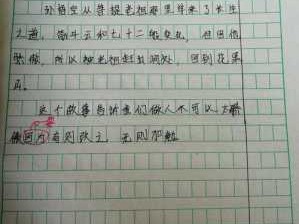 孙悟空从菩提老祖那里学来了长生
之道,筋斗云和七十二般变化,但因他
骄傲,所以被老祖赶出洞外,回到花果
山。
这个故事告诉我们做人不可以太骄
傲 有则改之,无则加勉